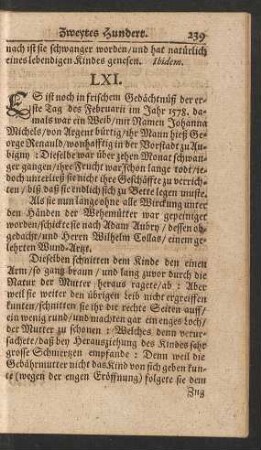 Zweytes Hundert. 239
nach ist sie schwanger worden/ und hat natürlich
eines lebendigen Kindes genesen. Ibidem.
LXI.
ES ist noch in frischem Gedächtnüß der er-
ste Tag des Februarii im Jahr 1578. da-
mals war ein Weib/ mit Namen Johanna
Michels/ von Argent bürtig/ ihr Mann hieß Ge-
orge Renauld/ wonhafftig in der Vorstadt zu Au-
bigny: Dieselbe war über zehen Monat schwan-
ger gangen/ ihre Frucht war schon lange todt/ je-
doch unterließ sie nicht ihre Geschäffte zu verrich-
ten/ biß daß sie endlich sich zu Bette legen muste.
Als sie nun lange ohne alle Wirckung unter
den Händen der Wehemütter war gepeiniget
worden/ schickte sie nach Adam Aubry/ dessen ob-
gedacht/ und Herrn Wilhelm Collas/ einem ge-
lehrten Wund-Artzt.
Dieselben schnitten dem Kinde den einen
Arm/ so gantz braun/ und lang zuvor durch die
Natur der Mutter heraus ragete/ ab: Aber
weil sie weiter den übrigen Leib nicht ergreiffen
kunten/ schnitten sie ihr die rechte Seiten auff/
ein wenig rund/ und machten gar ein enges Loch/
der Mutter zu schonen: Welches denn verur-
sachete/ daß bey Herausziehung des Kindes sehr
grosse Schmertzen empfande: Denn weil die
Gebährmutter nicht das Kind von sich geben kun-
te (wegen der engen Eröffnung) folgete sie dem
Zug